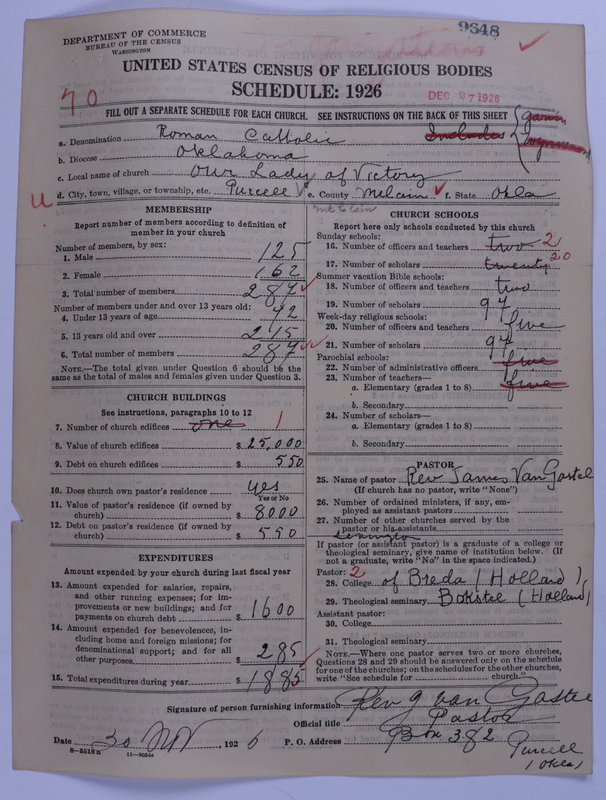 9648
DEPARTMENT OF COMMERCE
BUREAU OF THE CENSUS
WASHINGTON
UNITED STATES CENSUS OF RELIGIOUS BODIES
SCHEDULE: 1926
DEC 27 1926
70
FILL OUT A SEPARATE SCHEDULE FOR EACH CHURCH. SEE INSTRUCTIONS ON THE BACK OF THIS SHEET
a. Denomination Roman Catholic Includes
b. Diocese Oklahoma
c. Local name of church Our Lady of Victory
d. City, town, village, or township, etc. Purcell e. County McLain f. State Okla
McClain
MEMBERSHIP
Report number of members according to definition of member in your church
Number of members, by sex:
1. Male 125
2. Female 162
3. Total number of members 287
Number of members under and over 13 years old:
4. Under 13 years of age 42
5. 13 years old and over 215
6. Total number of members 287
NOTE.—The total given under Question 6 should be the same as the total of males and females given under Question 3.
CHURCH BUILDINGS
See instructions, paragraphs 10 to 12
7. Number of church edifices one 1
8. Value of church edifices $ 25,000
9. Debt on church edifices $ 550
10. Does church own pastor's residence yes
Yes or No
11. Value of pastor's residence (if owned by church) $ 8000
12. Debt on pastor's residence (if owned by church) $ 550
EXPENDITURES
Amount expended by your church during last fiscal year
13. Amount expended for salaries, repairs, and other running expenses; for improvements or new buildings; and for payments on church debt $ 1600
14. Amount expended for benevolences, including home and foreign missions; for denominational support; and for all other purposes $ 285
15. Total expenditures during year $ 1885
CHURCH SCHOOLS
Report here only schools conducted by this church
Sunday schools:
16. Number of officers and teachers two 2
17. Number of scholars twenty 20
Summer vacation Bible schools:
18. Number of officers and teachers two
19. Number of scholars 97
Week-day religious schools:
20. Number of officers and teachers five
21. Number of scholars 97
Parochial schools:
22. Number of administrative officers five
23. Number of teachers—
a. Elementary (grades 1 to 8) five
b. Secondary
24. Number of scholars—
a. Elementary (grades 1 to 8)
b. Secondary
PASTOR
25. Name of pastor Rev James Van Gastel
(If church has no pastor, write "None")
26. Number of ordained ministers, if any, employed as assistant pastors
27. Number of other churches served by the pastor or his assistants Lexington
If pastor (or assistant pastor) is a graduate of a college or theological seminary, give name of institution below. (If not a graduate, write "No" in the space indicated.)
Pastor: 2
28. College of Breda (Holland)
29. Theological seminary Bokstel (Holland)
Assistant pastor:
30. College
31. Theological seminary
NOTE.—Where one pastor serves two or more churches, Questions 28 and 29 should be answered only on the schedule for one of the churches; on the schedules for the other churches, write "See schedule for church."
Signature of person furnishing information Rev J van Gastel
Official title Pastor
Date 30 Nov, 1926 P. O. Address Box 382
Purcell
(Okla)
8-5518a 11-9064